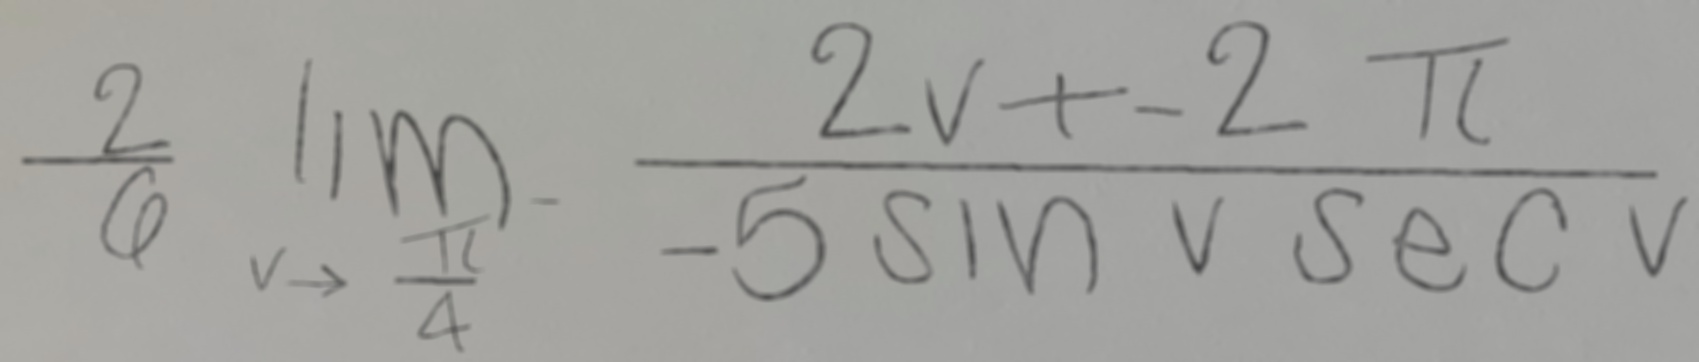 \frac{2}{6} \lim_{v \to \frac{\pi}{4}^{-}} \frac{2v + -2\pi}{-5 \sin v \sec v}